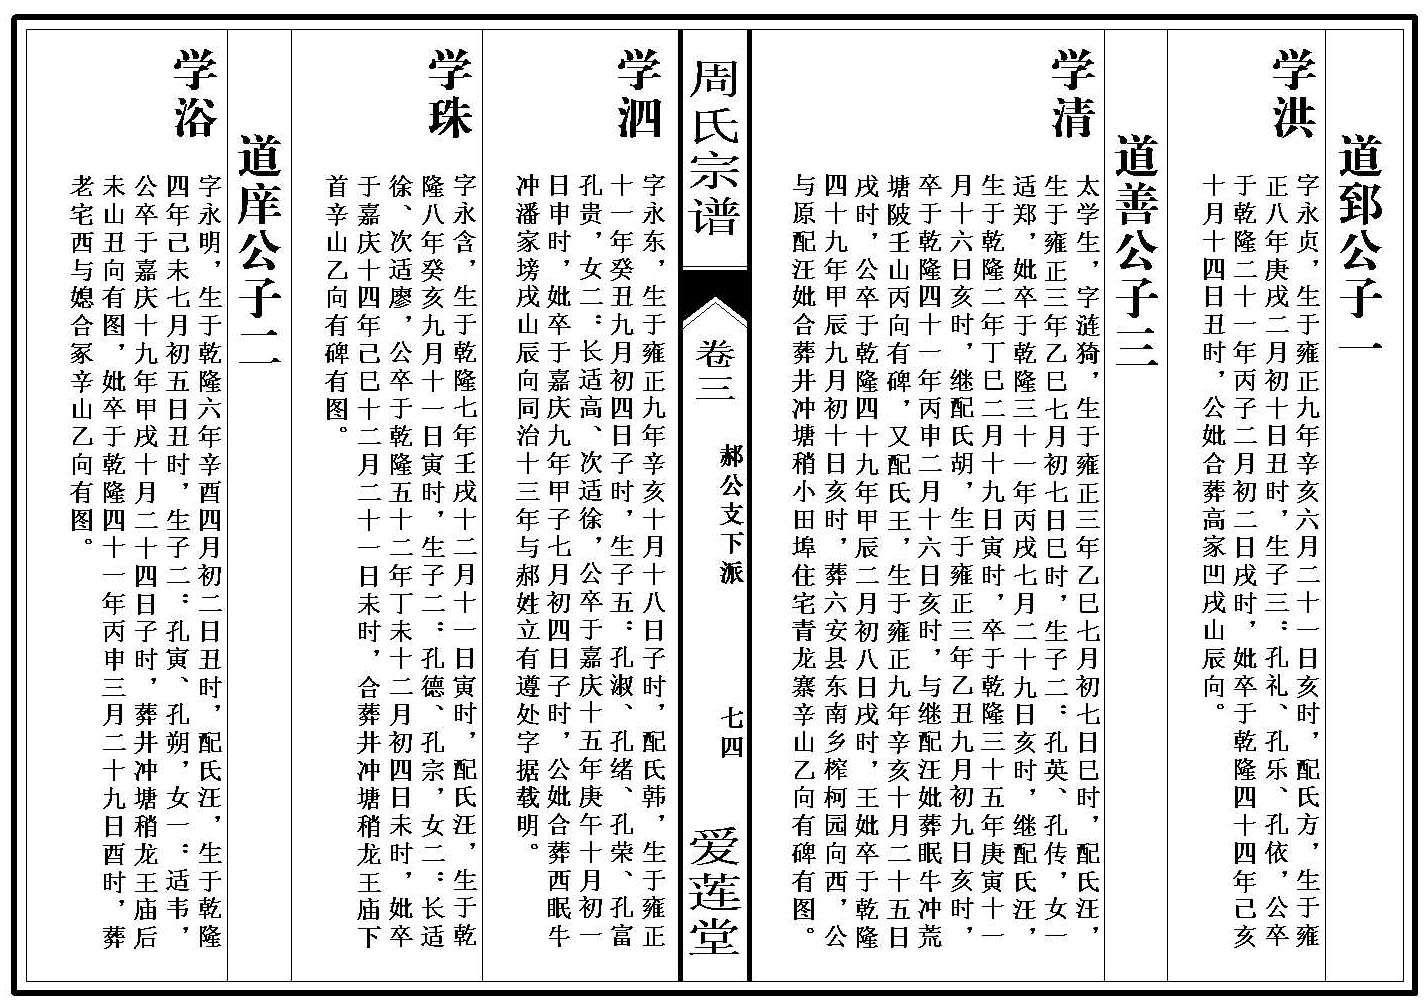 道郅公子一
学洪
字永贞，生于雍正九年辛亥六月二十一日亥时，配氏方，生于雍
正八年庚戌二月初十日丑时，生子三：孔礼、孔乐、孔依，公卒
于乾隆二十一年丙子二月初二日戌时，妣卒于乾隆四十四年己亥
十月十四日丑时，公妣合葬高家凹戌山辰向。
道善公子三
学清
太学生，字涟猗，生于雍正三年乙巳七月初七日巳时，配氏汪，
生于雍正三年乙巳七月初七日巳时，生子二：孔英、孔传，女一
适郑，妣卒于乾隆三十一年丙戌七月二十九日亥时，继配氏汪，
生于乾隆二年丁巳二月十九日寅时，卒于乾隆三十五年庚寅十一
月十六日亥时，继配氏胡，生于雍正三年乙丑九月初九日亥时，
卒于乾隆四十一年丙申二月十六日亥时，与继配汪妣葬眠牛冲荒
塘陂壬山丙向有碑，又配氏王，生于雍正九年辛亥十月二十五日
戌时，公卒于乾隆四十九年甲辰二月初八日戌时，王妣卒于乾隆
四十九年甲辰九月初十日亥时，葬六安县东南乡榨柯园向西，公
与原配汪妣合葬井冲塘稍小田埠住宅青龙寨辛山乙向有碑有图。
周氏宗谱
卷三
郝公支下派
七四
爱莲堂
学泗
字永东，生于雍正九年辛亥十月十八日子时，配氏韩，生于雍正
十一年癸丑九月初四日子时，生子五：孔淑、孔绪、孔荣、孔富
孔贵，女二：长适高、次适徐，公卒于嘉庆十五年庚午十月初一
日申时，妣卒于嘉庆九年甲子七月初四日子时，公妣合葬西眠牛
冲潘家塝戌山辰向同治十三年与郝姓立有遵处字据载明。
学珠
字永含，生于乾隆七年壬戌十二月十一日寅时，配氏汪，生于乾
隆八年癸亥九月十一日寅时，生子二：孔德、孔宗，女二：长适
徐、次适廖，公卒于乾隆五十二年丁未十二月初四日未时，妣卒
于嘉庆十四年己巳十二月二十一日未时，合葬井冲塘稍龙王庙下
首辛山乙向有碑有图。
道庠公子二
学浴
字永明，生于乾隆六年辛酉四月初二日丑时，配氏汪，生于乾隆
四年己未七月初五日丑时，生子二：孔寅、孔朔，女一：适韦，
公卒于嘉庆十九年甲戌十月二十四日子时，葬井冲塘稍龙王庙后
未山丑向有图，妣卒于乾隆四十一年丙申三月二十九日酉时，葬
老宅西与媳合冢辛山乙向有图。